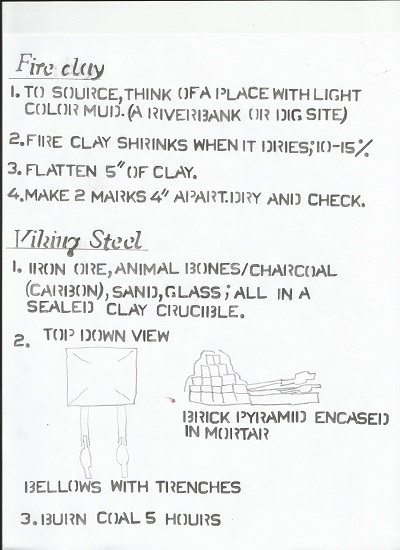 Fire clay
1. TO SOURCE, THINK OF A PLACE WITH LIGHT
COLOR MUD. (A RIVERBANK OR DIG SITE)
2. FIRE CLAY SHRINKS WHEN IT DRIES; 10-15%
3. FLATTEN 5" OF CLAY.
4. MAKE 2 MARKS 4" APART. DRY AND CHECK.
Viking Steel
1. IRON ORE, ANIMAL BONES/CHARCOAL
(CARBON), SAND, GLASS; ALL IN A
SEALED CLAY CRUCIBLE.
2. TOP DOWN VIEW
BRICK PYRAMID ENCASED
IN MORTAR
BELLOWS WITH TRENCHES
3. BURN COAL 5 HOURS